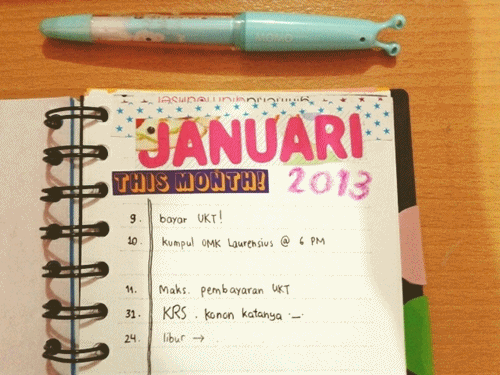 JANUARI
THIS MONTH! 2013
9. bayar UKT!
10. kumpul OMK Laurensius @ 6 PM
11. Maks. pembayaran UKT
31. KRS. konon katanya ._.
24. libur →